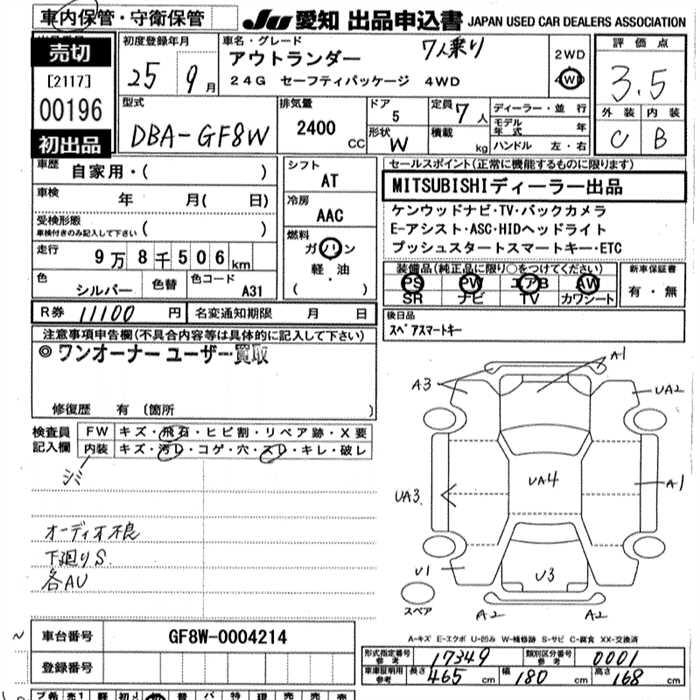 車内保管・守衛保管
JU 愛知 出品申込書 JAPAN USED CAR DEALERS ASSOCIATION
売切
[2117]
00196
初出品
初度登録年月
25年 9月
車名・グレード
アウトランダー 7人乗り
24G セーフティパッケージ 4WD
2WD
4WD
評価点
3.5
外装 内装
C B
型式
DBA-GF8W
排気量
2400 CC
ドア
5
形状
W
定員 7人
積載 kg
ディーラー・並行
モデル年式 年
ハンドル 左・右
車歴
自家用・( )
車検 年 月( 日)
受検形態
車検付きのみ記入して下さい ( )
走行 9万8千506km
色 シルバー 色替 色コード A31
R券 11100円 名変通知期限 月 日
シフト
AT
冷房
AAC
燃料
ガソリン
軽油
( )
セールスポイント(正常に機能するものに限ります)
MITSUBISHIディーラー出品
ケンウッドナビ・TV・バックカメラ
E-アシスト・ASC・HIDヘッドライト
プッシュスタートスマートキー・ETC
装備品(純正品に限り○をつけてください)
PS PW エアB AW
SR ナビ TV カワシート
新車保証書
有・無
後日品
スペアスマートキー
注意事項申告欄(不具合内容等は具体的に記入して下さい)
◎ワンオーナー ユーザー買取
修復歴 有(箇所 )
検査員記入欄
FW キズ・飛石・ヒビ割・リペア跡・X要
内装 キズ・汚レ・コゲ・穴・スレ・キレ・破レ
シミ
オーディオ不良
下廻りS
各AU
A3
A1
UA2
UA3
UA4
A1
U1
U3
スペア
A2
A2
A-キズ E-エクボ U-凹み W-補修跡 S-サビ C-腐食 XX-交換済
車台番号 GF8W-0004214
登録番号
形式指定番号 参考 17349 類別区分番号 参考 0001
車庫証明用 参考 長さ 465 cm 幅 180 cm 高さ 168 cm